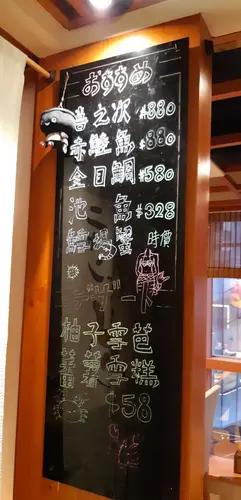 おすすめ
喜之次 $880
赤鯥魚 $880
金目鯛 $580
池魚 $328
鱈場蟹 時價
柚子雪芭
蕃薯雪糕
$58